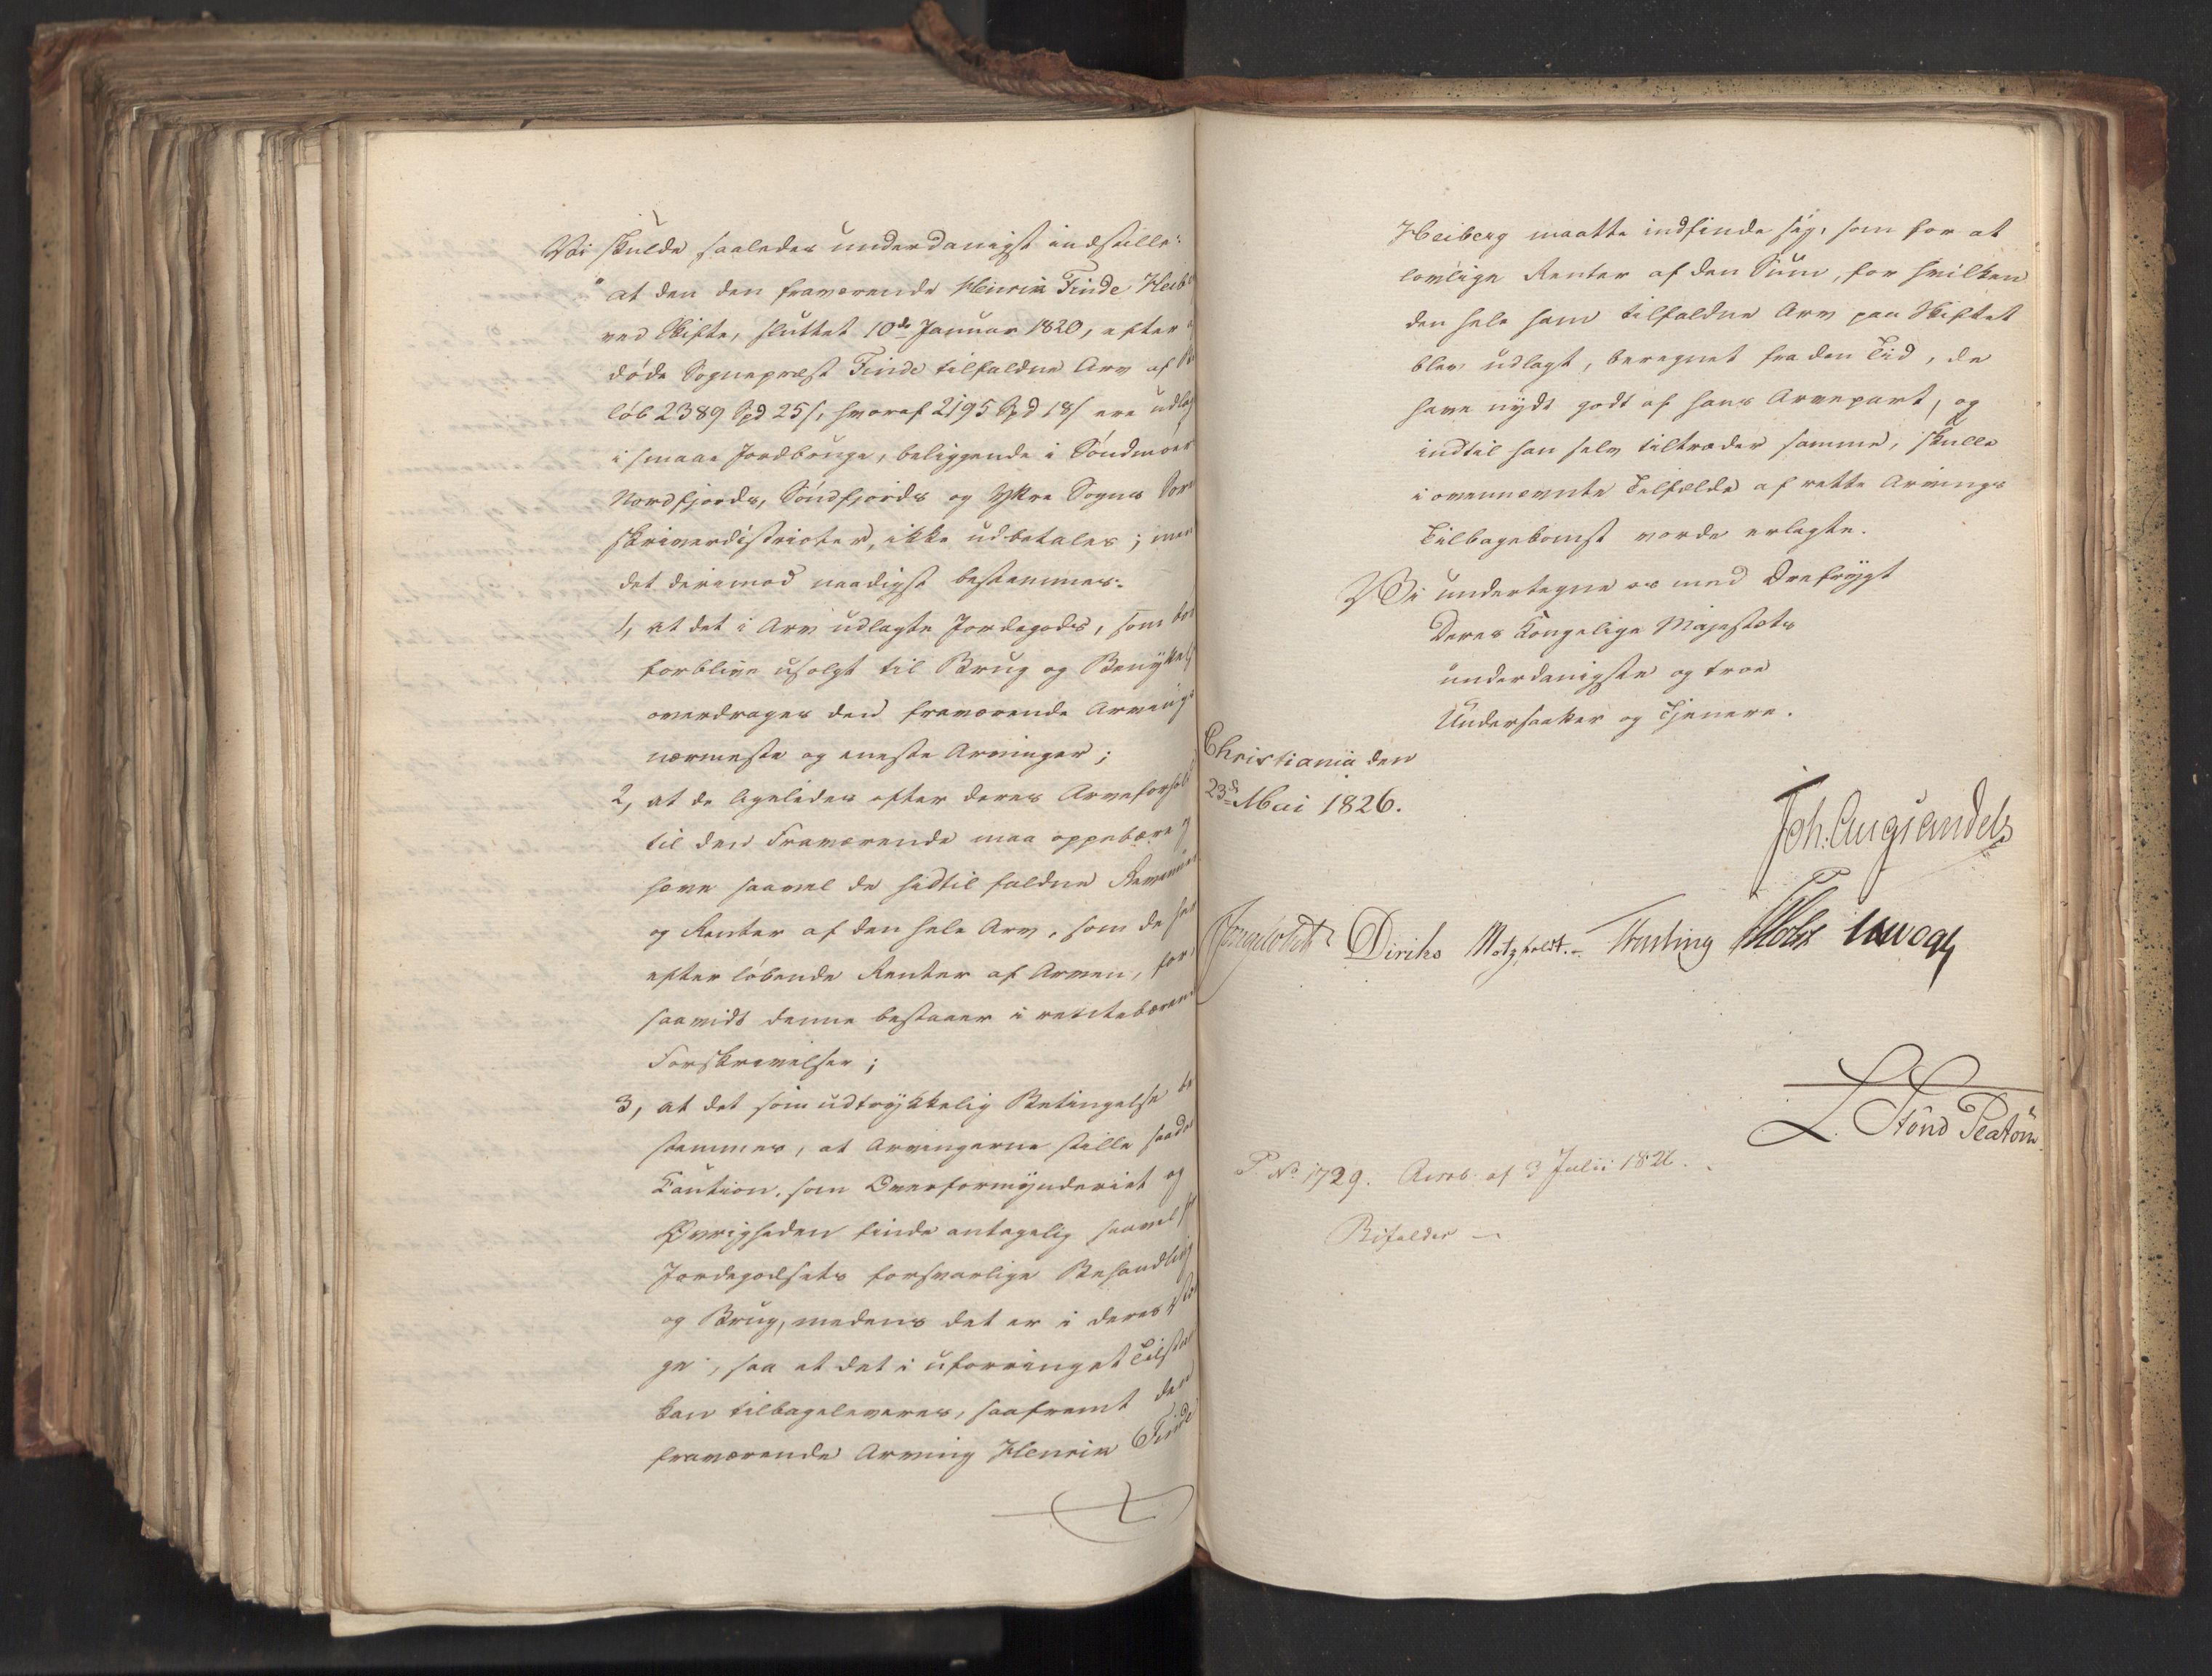 Vi skulde saaledes underdanigst indstille:
"at den den fraværende Henrik Finde Heib
ved Skifte, sluttet 10de Januar 1820, efter
døde Sognepræst Finde tilfaldne Arv af
løb 2389 Spd 25 s, hvoraf 2195 Spd 18 s ere udlag
i smaae Jordbruge, beliggende i Søndmøers
Nordfjords, Søndfjords og Yttre Sogns Soren
skriverdistricter, ikke udbetales; men
det derimod naadigst bestemmes:
1, at det i Arv udlagte Jordegods, som bør
forblive usolgt til Brug og Benyttelse
overdrages den fraværende Arvings
nærmeste og eneste Arvinger;
2, at de ligeledes efter deres Arveforhold
til den Fraværende maa oppebære og
hæve saavel de hidtil faldne Revenüer
og Renter af den hele Arv, som de her
efter løbende Renter af Arven, for
saavidt denne bestaaer i rentebærende
Forskrivelser;
3, at det som udtrykkelig Betingelse be
stemmes, at Arvingerne stille saadan
Caution, som Overformynderiet og
Øvrigheden finde antagelig saavel for
Jordegodsets forsvarlige Behandling
og Brug, medens det er i deres
ge, saa at det i uforringet Tilstand
kan tilbageleveres, saafremt den
fraværende Arving Henrik Finde
Heiberg maatte indfinde sig, som for at
lovlige Renter af den Sum, for hvilken
den hele ham tilfaldne Arv paa Skiftet
blev udlagt, beregnet fra den Tid, de
have nydt godt af hans Arvepart, og
indtil han selv tiltræder samme, skulle
i ovennævnte Tilfælde af rette Arvings
Tilbagekomst vorde erlagte.
Vi undertegne os med Ærefrygt
Deres Kongelige Majestæts
underdanigste og troe
Undersaatter og Tjenere.
Christiania den
23de Mai 1826.
Joh. Aug. Sandels
Diriks Motzfeldt. Treschow Holst
P. No 1729. Resol. af 3 Julii 1826.
Bifaldes